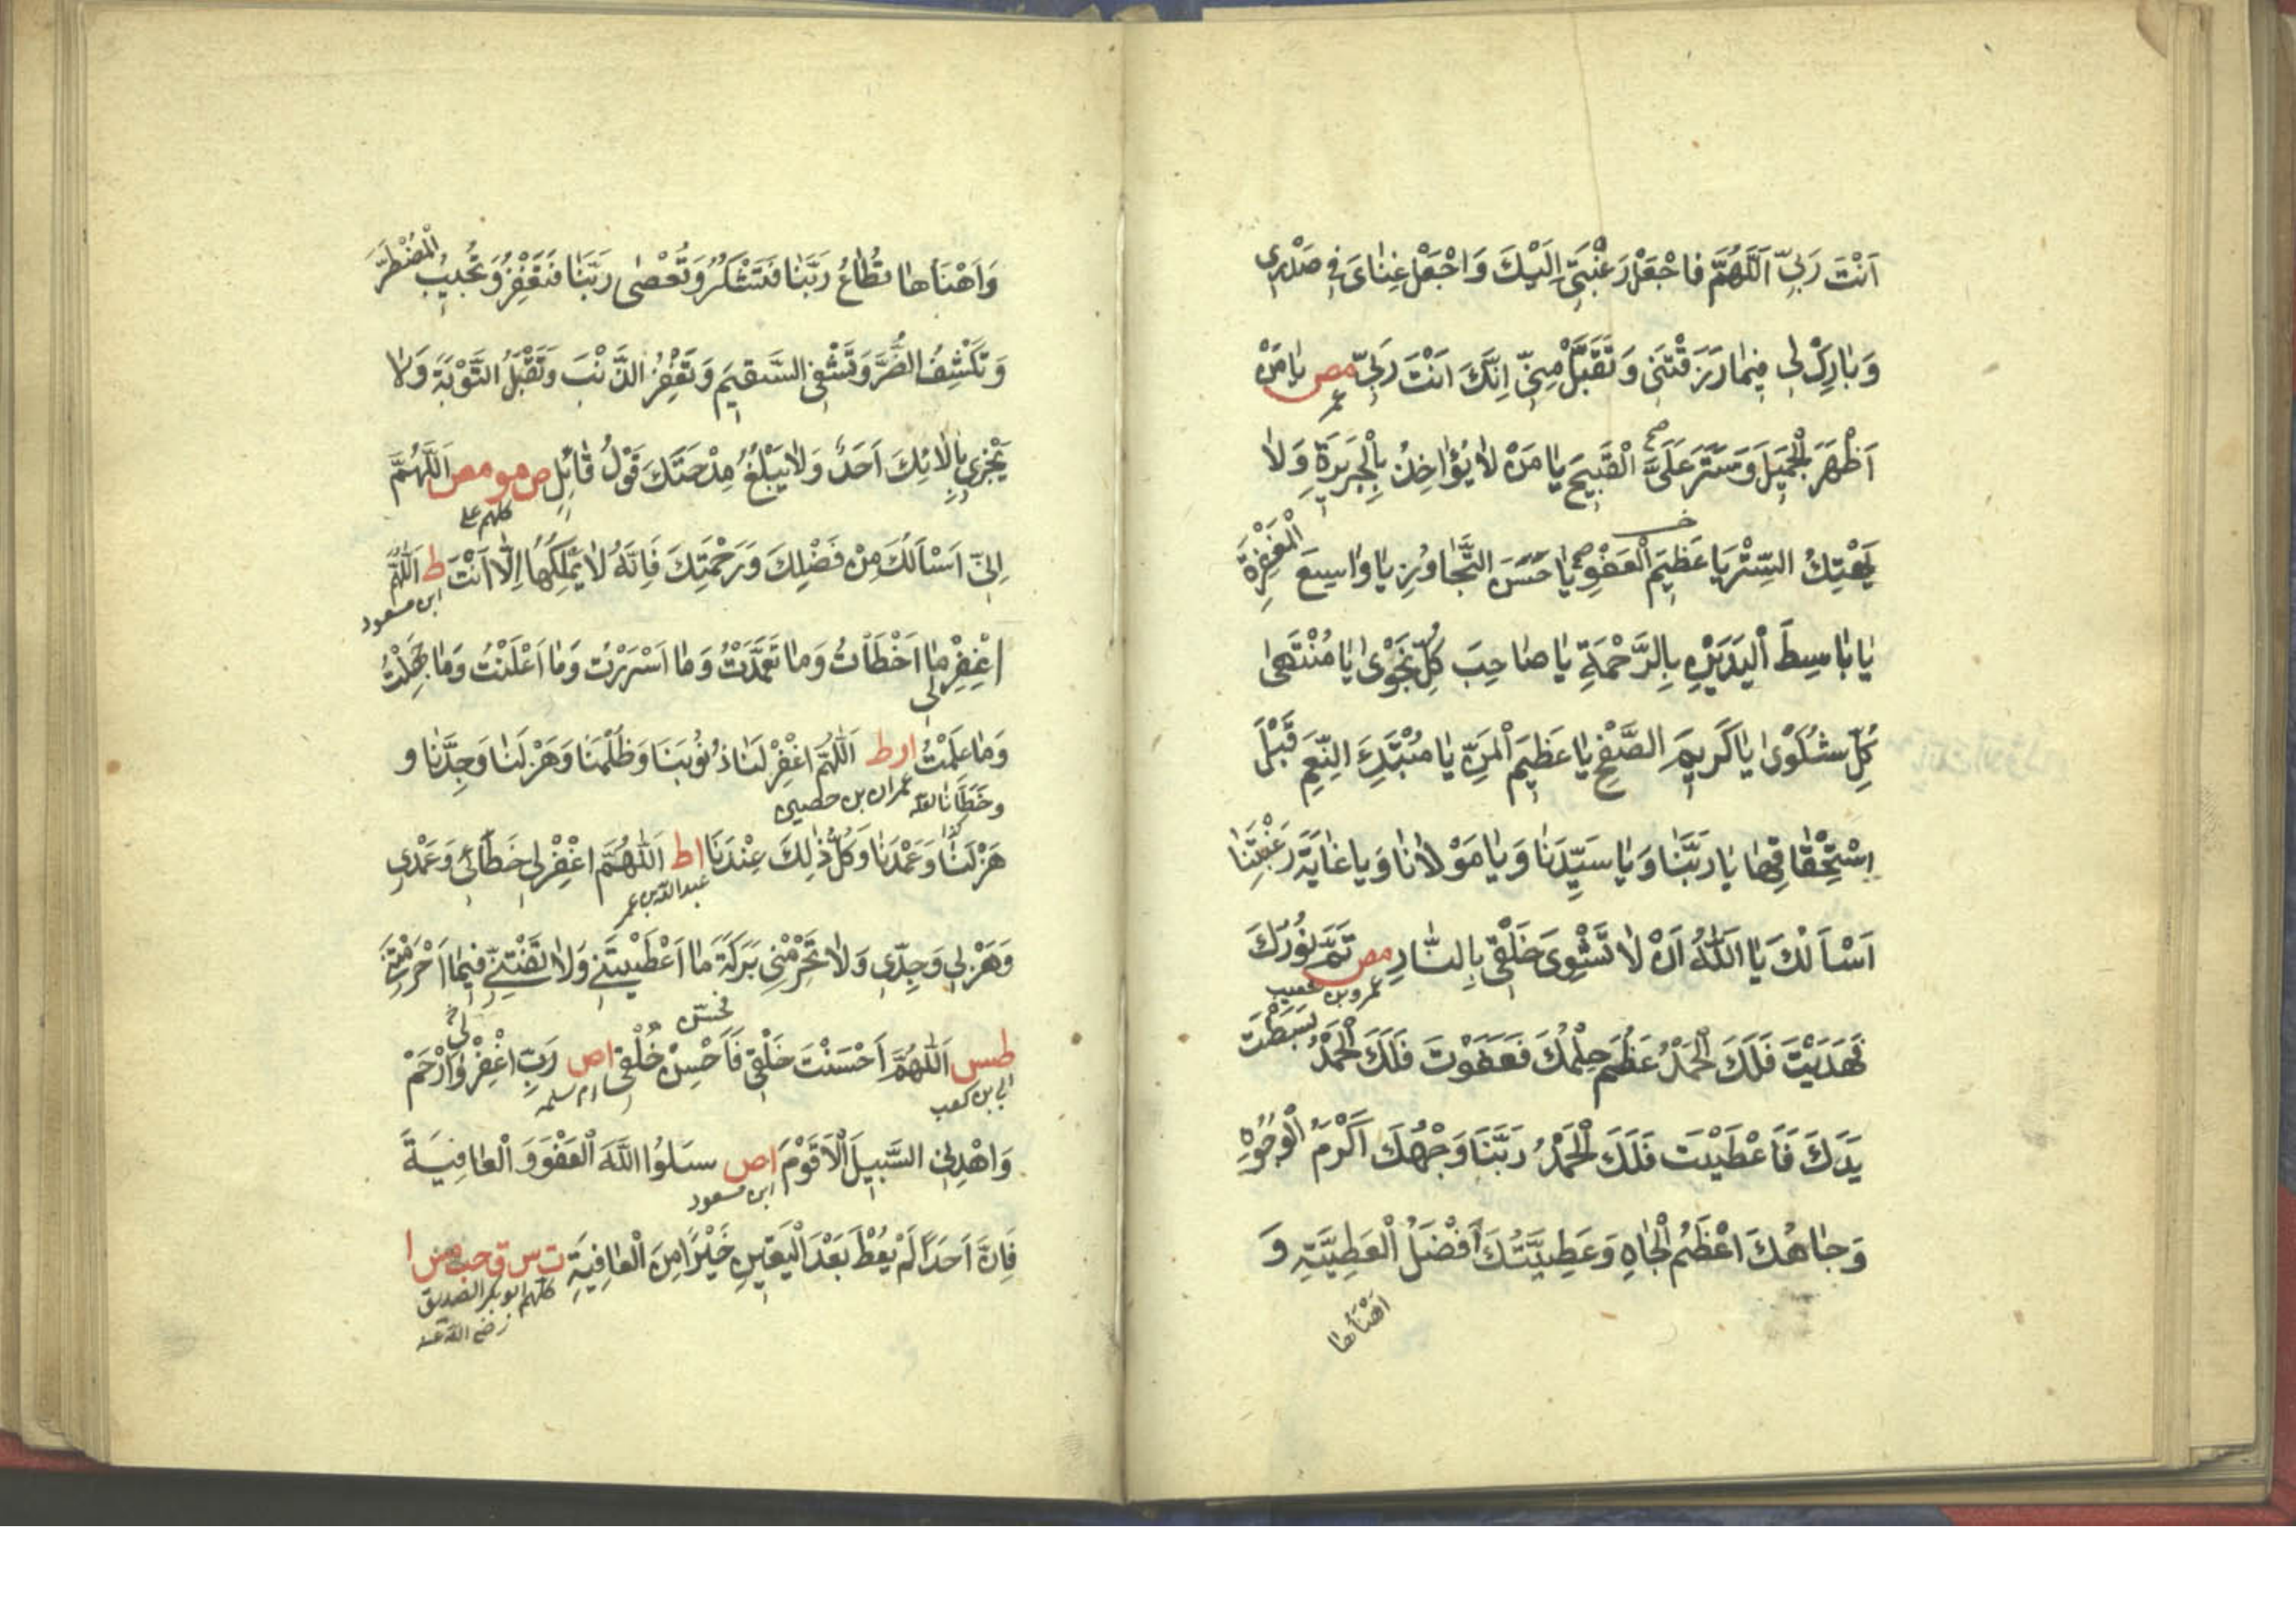 اَنْتَ رَبِّي اَللّٰهُمَّ فَاجْعَلْ رَغْبَتِي اِلَيْكَ وَاجْعَلْ غِنٰايَ فِي صَدْرِي
وَبٰارِكْ لِي فِيمٰا رَزَقْتَنِي وَتَقَبَّلْ مِنِّي اِنَّكَ اَنْتَ رَبِّي مص يٰا مَنْ
عمر
اَظْهَرَ الْجَمِيلَ وَسَتَرَ عَلَيَّ الْقَبِيحَ يٰا مَنْ لٰا يُؤٰاخِذُ بِالْجَرِيرَةِ وَلٰا
يَهْتِكُ السِّتْرَ يَا عَظِيمَ الْعَفْوِ يٰا حَسَنَ التَّجٰاوُزِ يٰا وٰاسِعَ الْمَغْفِرَةِ
يٰا بٰاسِطَ الْيَدَيْنِ بِالرَّحْمَةِ يٰا صٰاحِبَ كُلِّ نَجْوٰى يٰا مُنْتَهٰى
كُلِّ شَكْوٰى يٰا كَرِيمَ الصَّفْحِ يٰا عَظِيمَ الْمَنِّ يٰا مُبْتَدِئَ النِّعَمِ قَبْلَ
اِسْتِحْقٰاقِهٰا يٰا رَبَّنٰا وَيٰا سَيِّدَنٰا وَيٰا مَوْلٰانٰا وَيٰا غٰايَةَ رَغْبَتِنٰا
اَسْأَلُكَ يٰا اَللّٰهُ اَنْ لٰا تَشْوِيَ خَلْقِي بِالنّٰارِ مص تَمَّ نُورُكَ
عمرو بن شعيب
فَهَدَيْتَ فَلَكَ الْحَمْدُ عَظُمَ حِلْمُكَ فَعَفَوْتَ فَلَكَ الْحَمْدُ بَسَطْتَ
يَدَكَ فَاَعْطَيْتَ فَلَكَ الْحَمْدُ رَبَّنَا وَجْهُكَ اَكْرَمُ الْوُجُوهِ
وَجٰاهُكَ اَعْظَمُ الْجٰاهِ وَعَطِيَّتُكَ اَفْضَلُ الْعَطِيَّةِ وَ
اَهْنَأُهٰا
وَاَهْنَأُهٰا تُطٰاعُ رَبَّنٰا فَتَشْكُرُ وَتُعْصٰى رَبَّنٰا فَتَغْفِرُ وَتُجِيبُ الْمُضْطَرَّ
وَتَكْشِفُ الضُّرَّ وَتَشْفِي السَّقِيمَ وَتَغْفِرُ الذَّنْبَ وَتَقْبَلُ التَّوْبَةَ وَلٰا
يَجْزِي بِاٰلٰائِكَ اَحَدٌ وَلٰا يَبْلُغُ مِدْحَتَكَ قَوْلُ قٰائِلٍ ص مو مص اَللّٰهُمَّ
كلهم علي
اِنِّي اَسْأَلُكَ مِنْ فَضْلِكَ وَرَحْمَتِكَ فَاِنَّهُ لٰا يَمْلِكُهٰا اِلّٰا اَنْتَ ط اَللّٰهُمَّ
ابن مسعود
اغْفِرْ لِي مٰا اَخْطَأْتُ وَمٰا تَعَمَّدْتُ وَمٰا اَسْرَرْتُ وَمٰا اَعْلَنْتُ وَمٰا جَهِلْتُ
وَمٰا عَلِمْتُ ا ر ط اَللّٰهُمَّ اغْفِرْ لَنٰا ذُنُوبَنٰا وَظُلْمَنٰا وَهَزْلَنٰا وَجِدَّنٰا و
عمران بن حصين
هَزْلَنٰا وَعَمْدَنٰا وَكُلُّ ذٰلِكَ عِنْدَنٰا ا ط اَللّٰهُمَّ اغْفِرْ لِي خَطَائِي وَعَمْدِي
عبد الله بن عمر
وَهَزْلِي وَجِدِّي وَلٰا تَحْرِمْنِي بَرَكَةَ مٰا اَعْطَيْتَنِي وَلٰا تَفْتِنِّي فِيمٰا اَحْرَمْتَنِي
طس اَللّٰهُمَّ اَحْسَنْتَ خَلْقِي فَاَحْسِنْ خُلُقِي ا ص رَبِّ اغْفِرْ لِي وَارْحَمْ
ابي بن كعب ام سلمة
وَاهْدِنِي السَّبِيلَ الْاَقْوَمَ ا ص سَلُوا اللّٰهَ الْعَفْوَ وَ الْعٰافِيَةَ
ابن مسعود
فَاِنَّ اَحَدًا لَمْ يُعْطَ بَعْدَ الْيَقِينِ خَيْرًا مِنَ الْعٰافِيَةِ ت س ق حب مس ا
كلهم ابو بكر الصديق
رضي الله عنه